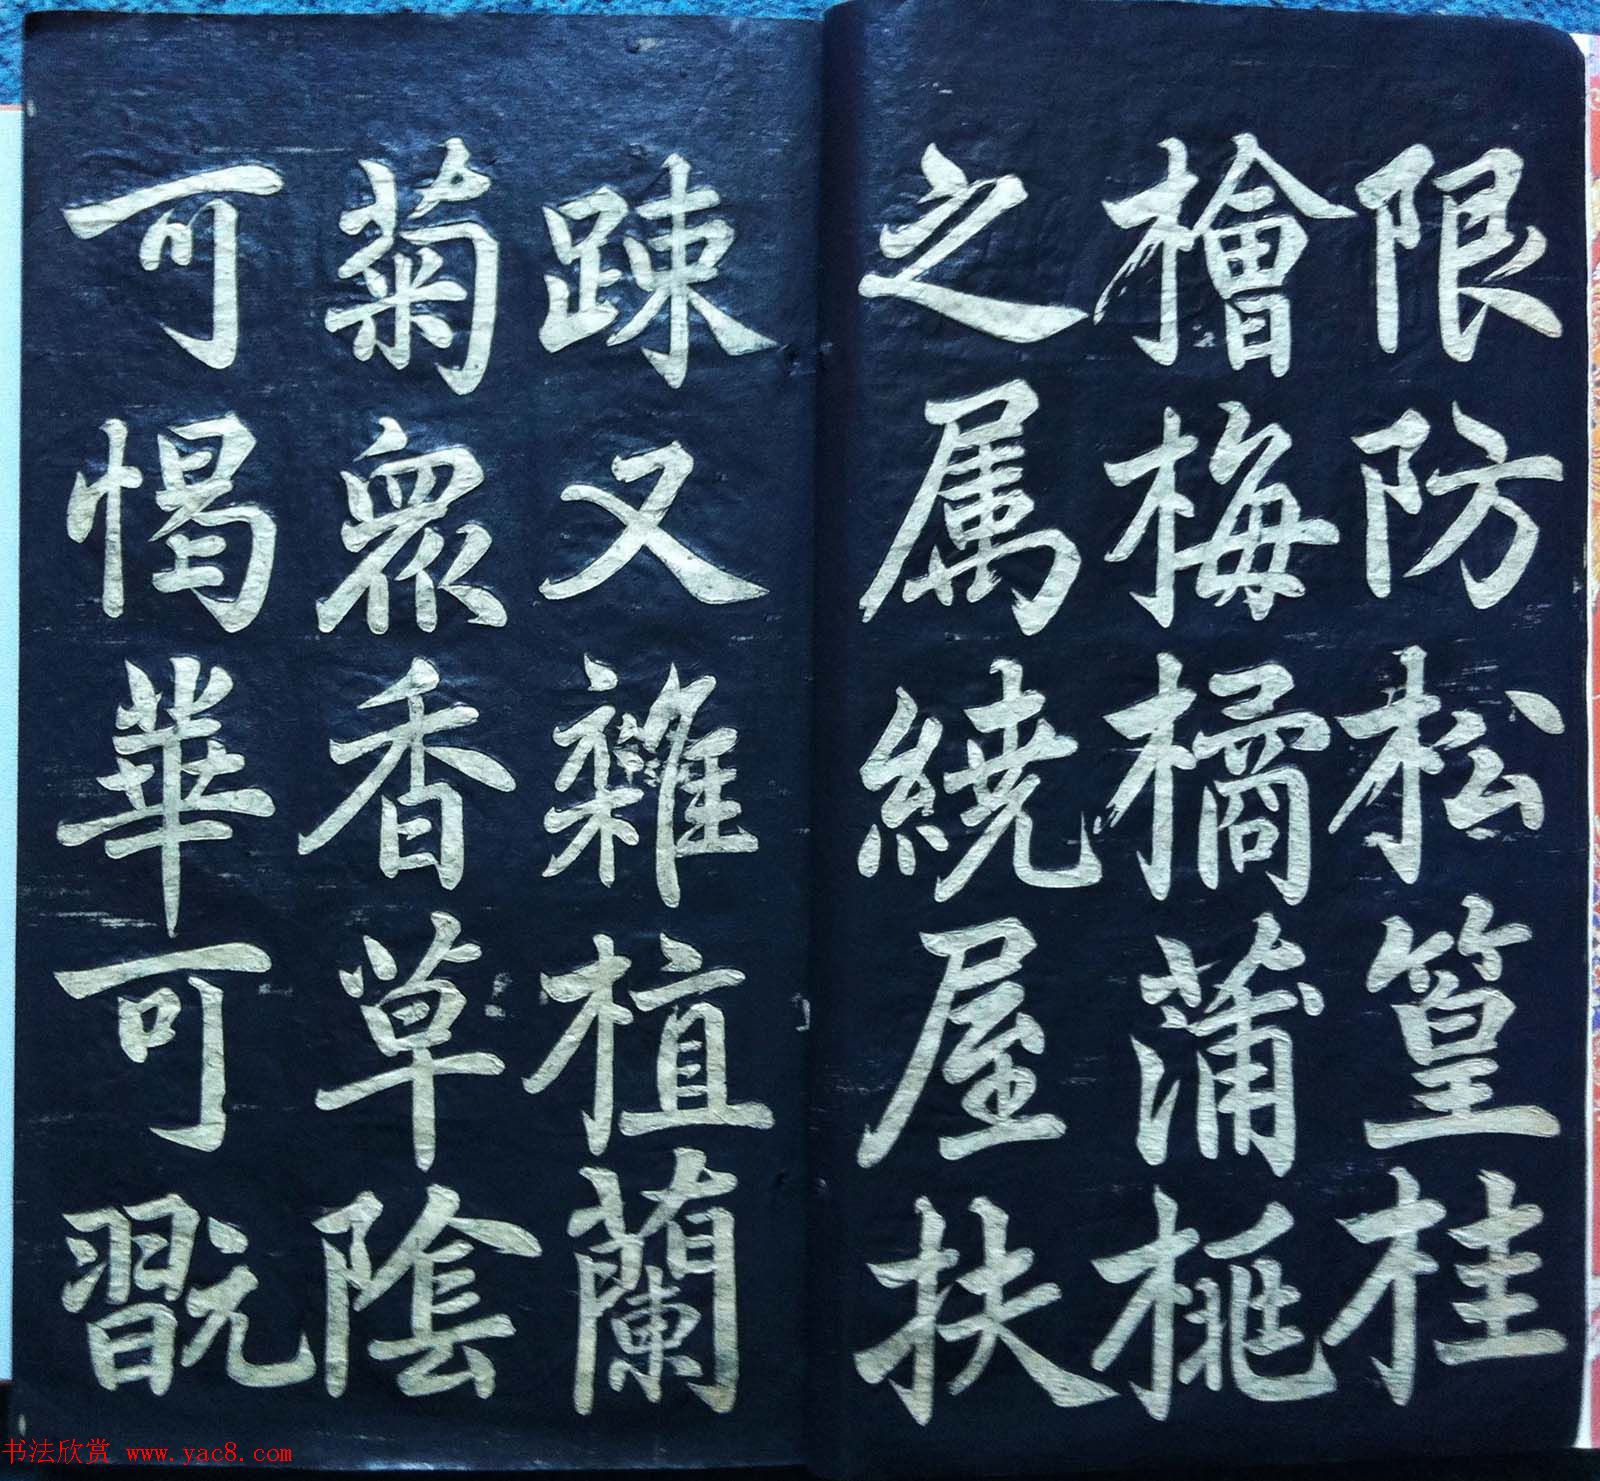 限防松篁桂
檜梅橘蒲桃
之属繞屋扶
踈又雜植蘭
菊衆香草陰
可憩華可翫
书法欣赏 www.yac8.com